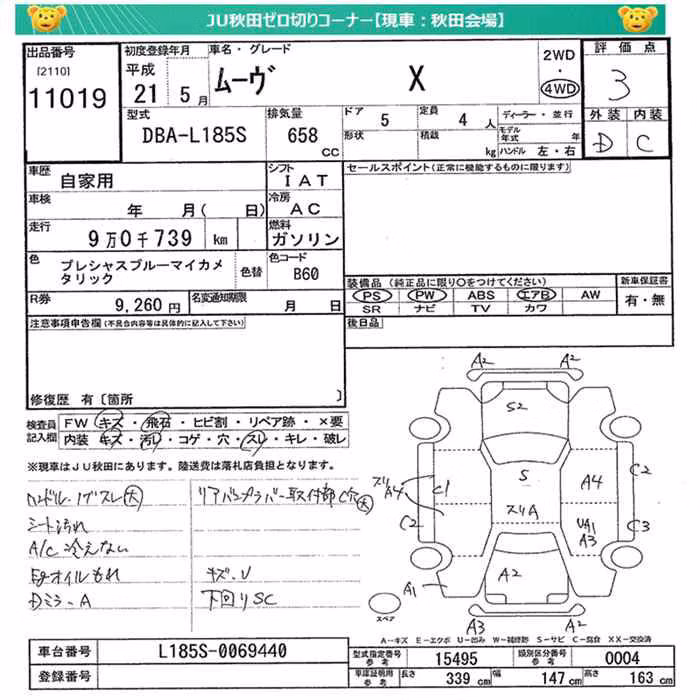 JU秋田ゼロ切りコーナー【現車：秋田会場】
出品番号
[2110]
11019
初度登録年月
平成
21 5月
車名・グレード
ムーヴ X
2WD
・
4WD
評価点
3
外装 内装
D C
型式
DBA-L185S
排気量
658
cc
ドア 5
定員 4 人
形状
積載 kg
ディーラー・並行
モデル年式 年
ハンドル 左・右
車歴
自家用
シフト
IAT
車検
年 月( 日)
冷房
AC
走行
9万0千739 km
燃料
ガソリン
色
プレシャスブルーマイカメタリック
色替
色コード
B60
R券
9,260円
名変通知期限
月 日
セールスポイント(正常に機能するものに限ります)
装備品(純正品に限り○をつけてください)
PS PW ABS エアB AW
SR ナビ TV カワ
新車保証書
有・無
後日品
注意事項申告欄(不具合内容等は具体的に記入して下さい)
修復歴 有〔箇所 〕
検査員記入欄
FW キズ・飛石・ヒビ割・リペア跡・×要
内装 キズ・汚レ・コゲ・穴・スレ・キレ・破レ
※現車はJU秋田にあります。陸送費は落札店負担となります。
ハンドル・ノブスレ大
シート汚れ
A/C 冷えない
Egオイルもれ
Dミラ-A
リアバンプラバー取付部C穴大
キズ・U
下回りSC
A2 A2
S2
S
スリA
A2
スリA4
C1
C2
A1
A4
UA1
A3
C2
C3
A3 A2
スペア
A-キズ E-エクボ U-凹み W-補修跡 S-サビ C-腐食 XX-交換済
車台番号
L185S-0069440
登録番号
型式指定番号参考
15495
類別区分番号参考
0004
車庫証明用参考
長さ 339 cm
幅 147 cm
高さ 163 cm